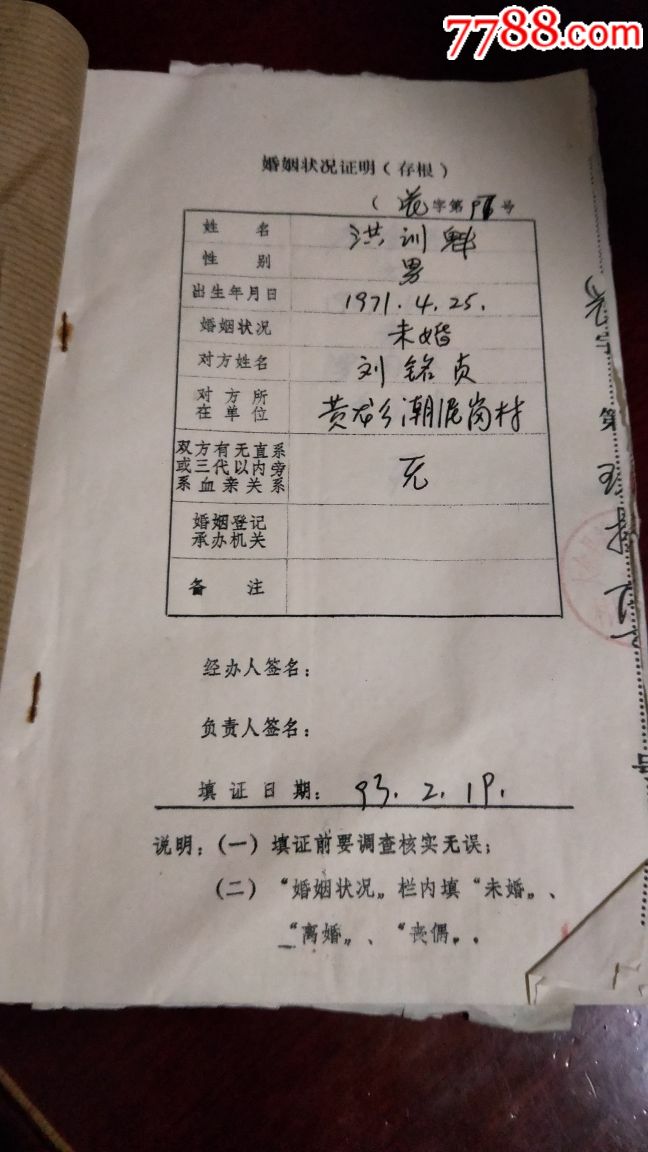 7788.com
婚姻状况证明(存根)
(字第号
姓名 洪训魁
性别 男
出生年月日 1971.4.25.
婚姻状况 未婚
对方姓名 刘铭贞
对方所
在单位
黄龙乡潮泥岗村
双方有无直系
或三代以内旁
系血亲关系
无
婚姻登记
承办机关
备注
经办人签名:
负责人签名:
填证日期: 93.2.19.
说明:(一)填证前要调查核实无误;
(二)“婚姻状况„栏内填“未婚„、
“离婚„、“丧偶„.
字
第
号